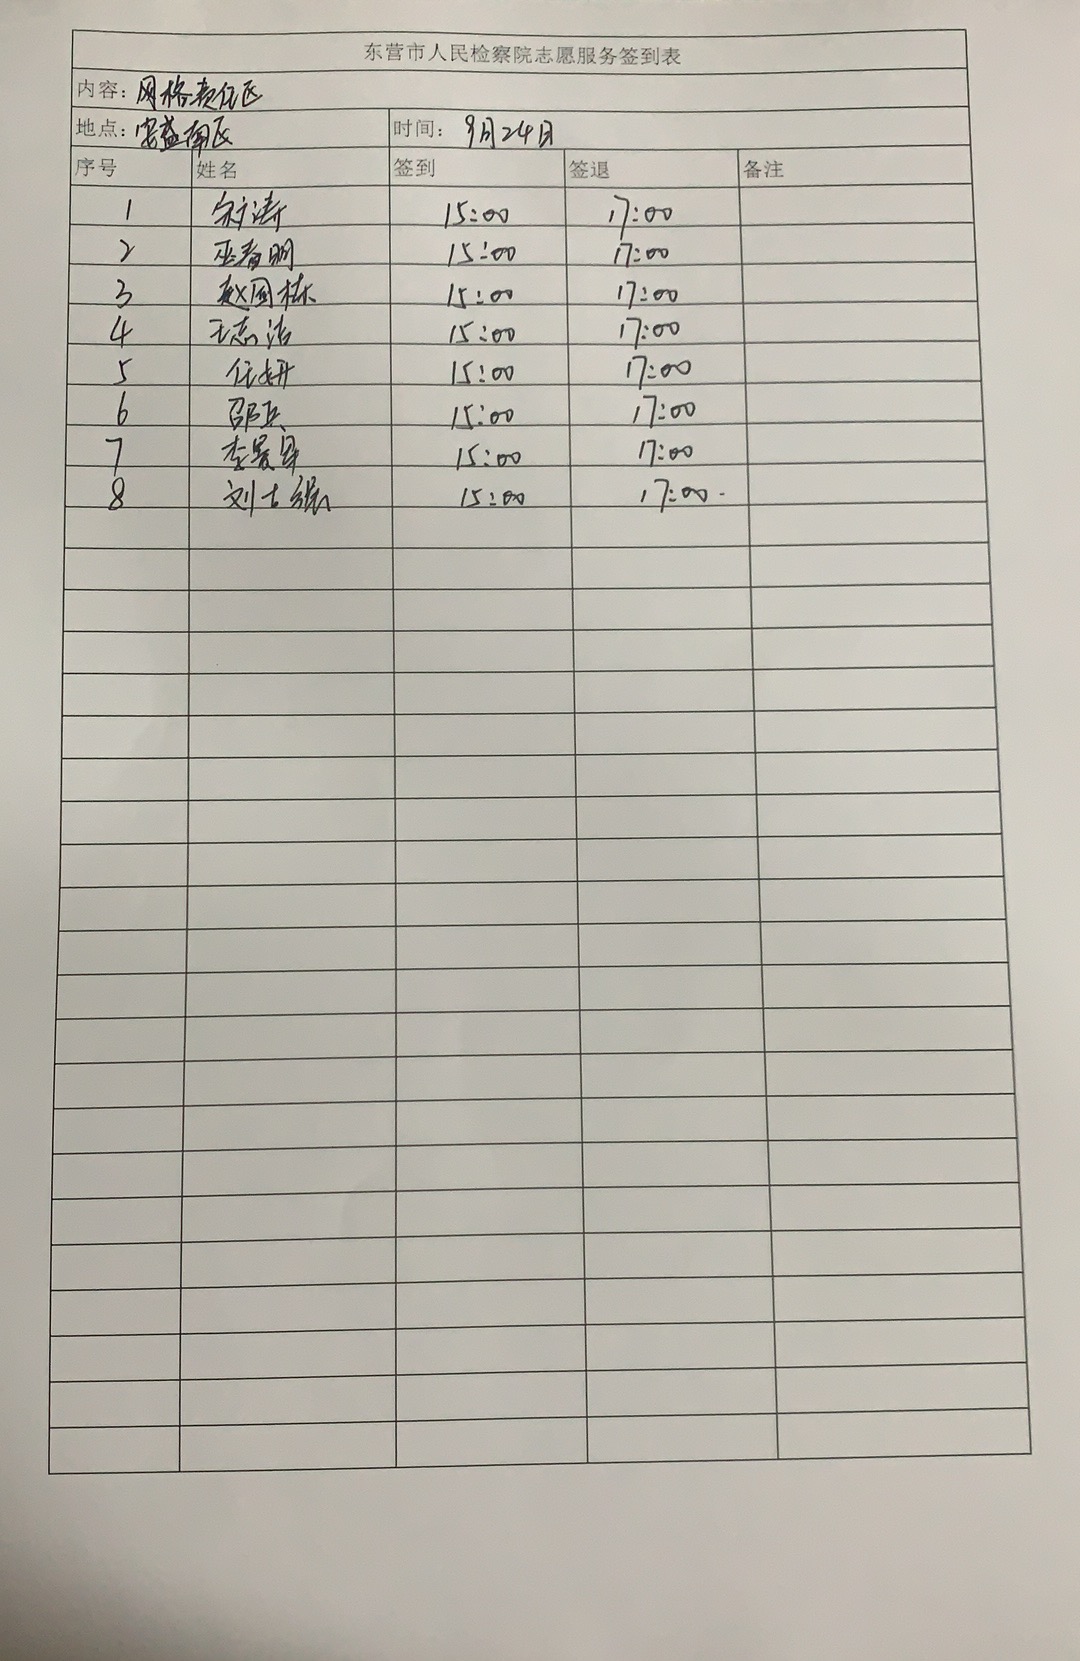 东营市人民检察院志愿服务签到表
内容：网格责任区
地点：安益南区 时间：9月24日
序号 姓名 签到 签退 备注
1 15:00 17:00
2 巫春明 15:00 17:00
3 赵国栋 15:00 17:00
4 王志洁 15:00 17:00
5 任妍 15:00 17:00
6 邵兵 15:00 17:00
7 15:00 17:00
8 刘士强 15:00 17:00